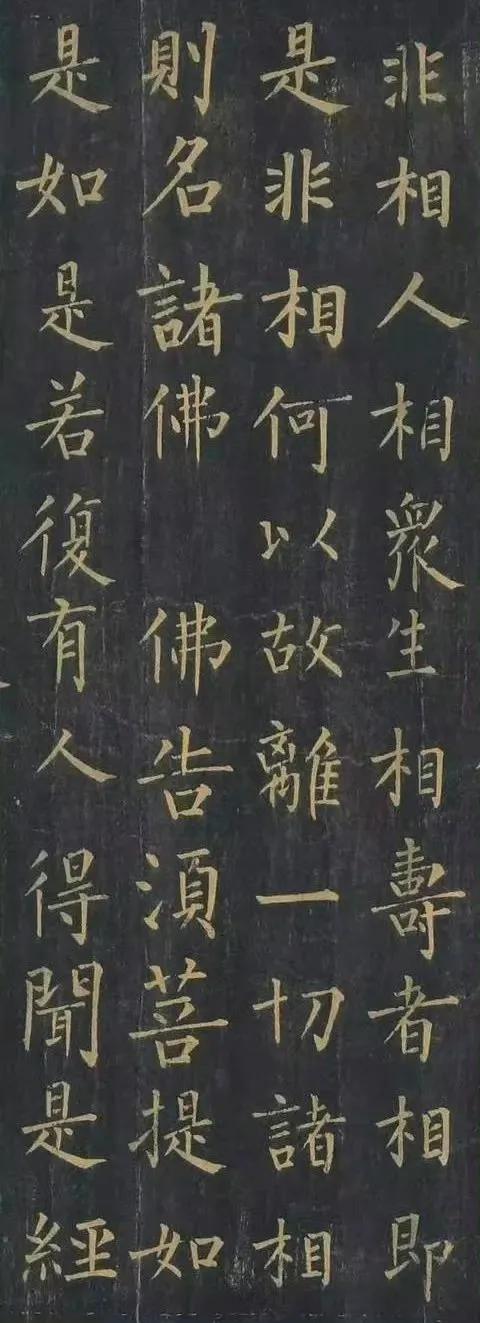 非相人相衆生相壽者相即
是非相何以故離一切諸相
則名諸佛　佛告湏菩提如
是如是若復有人得聞是經